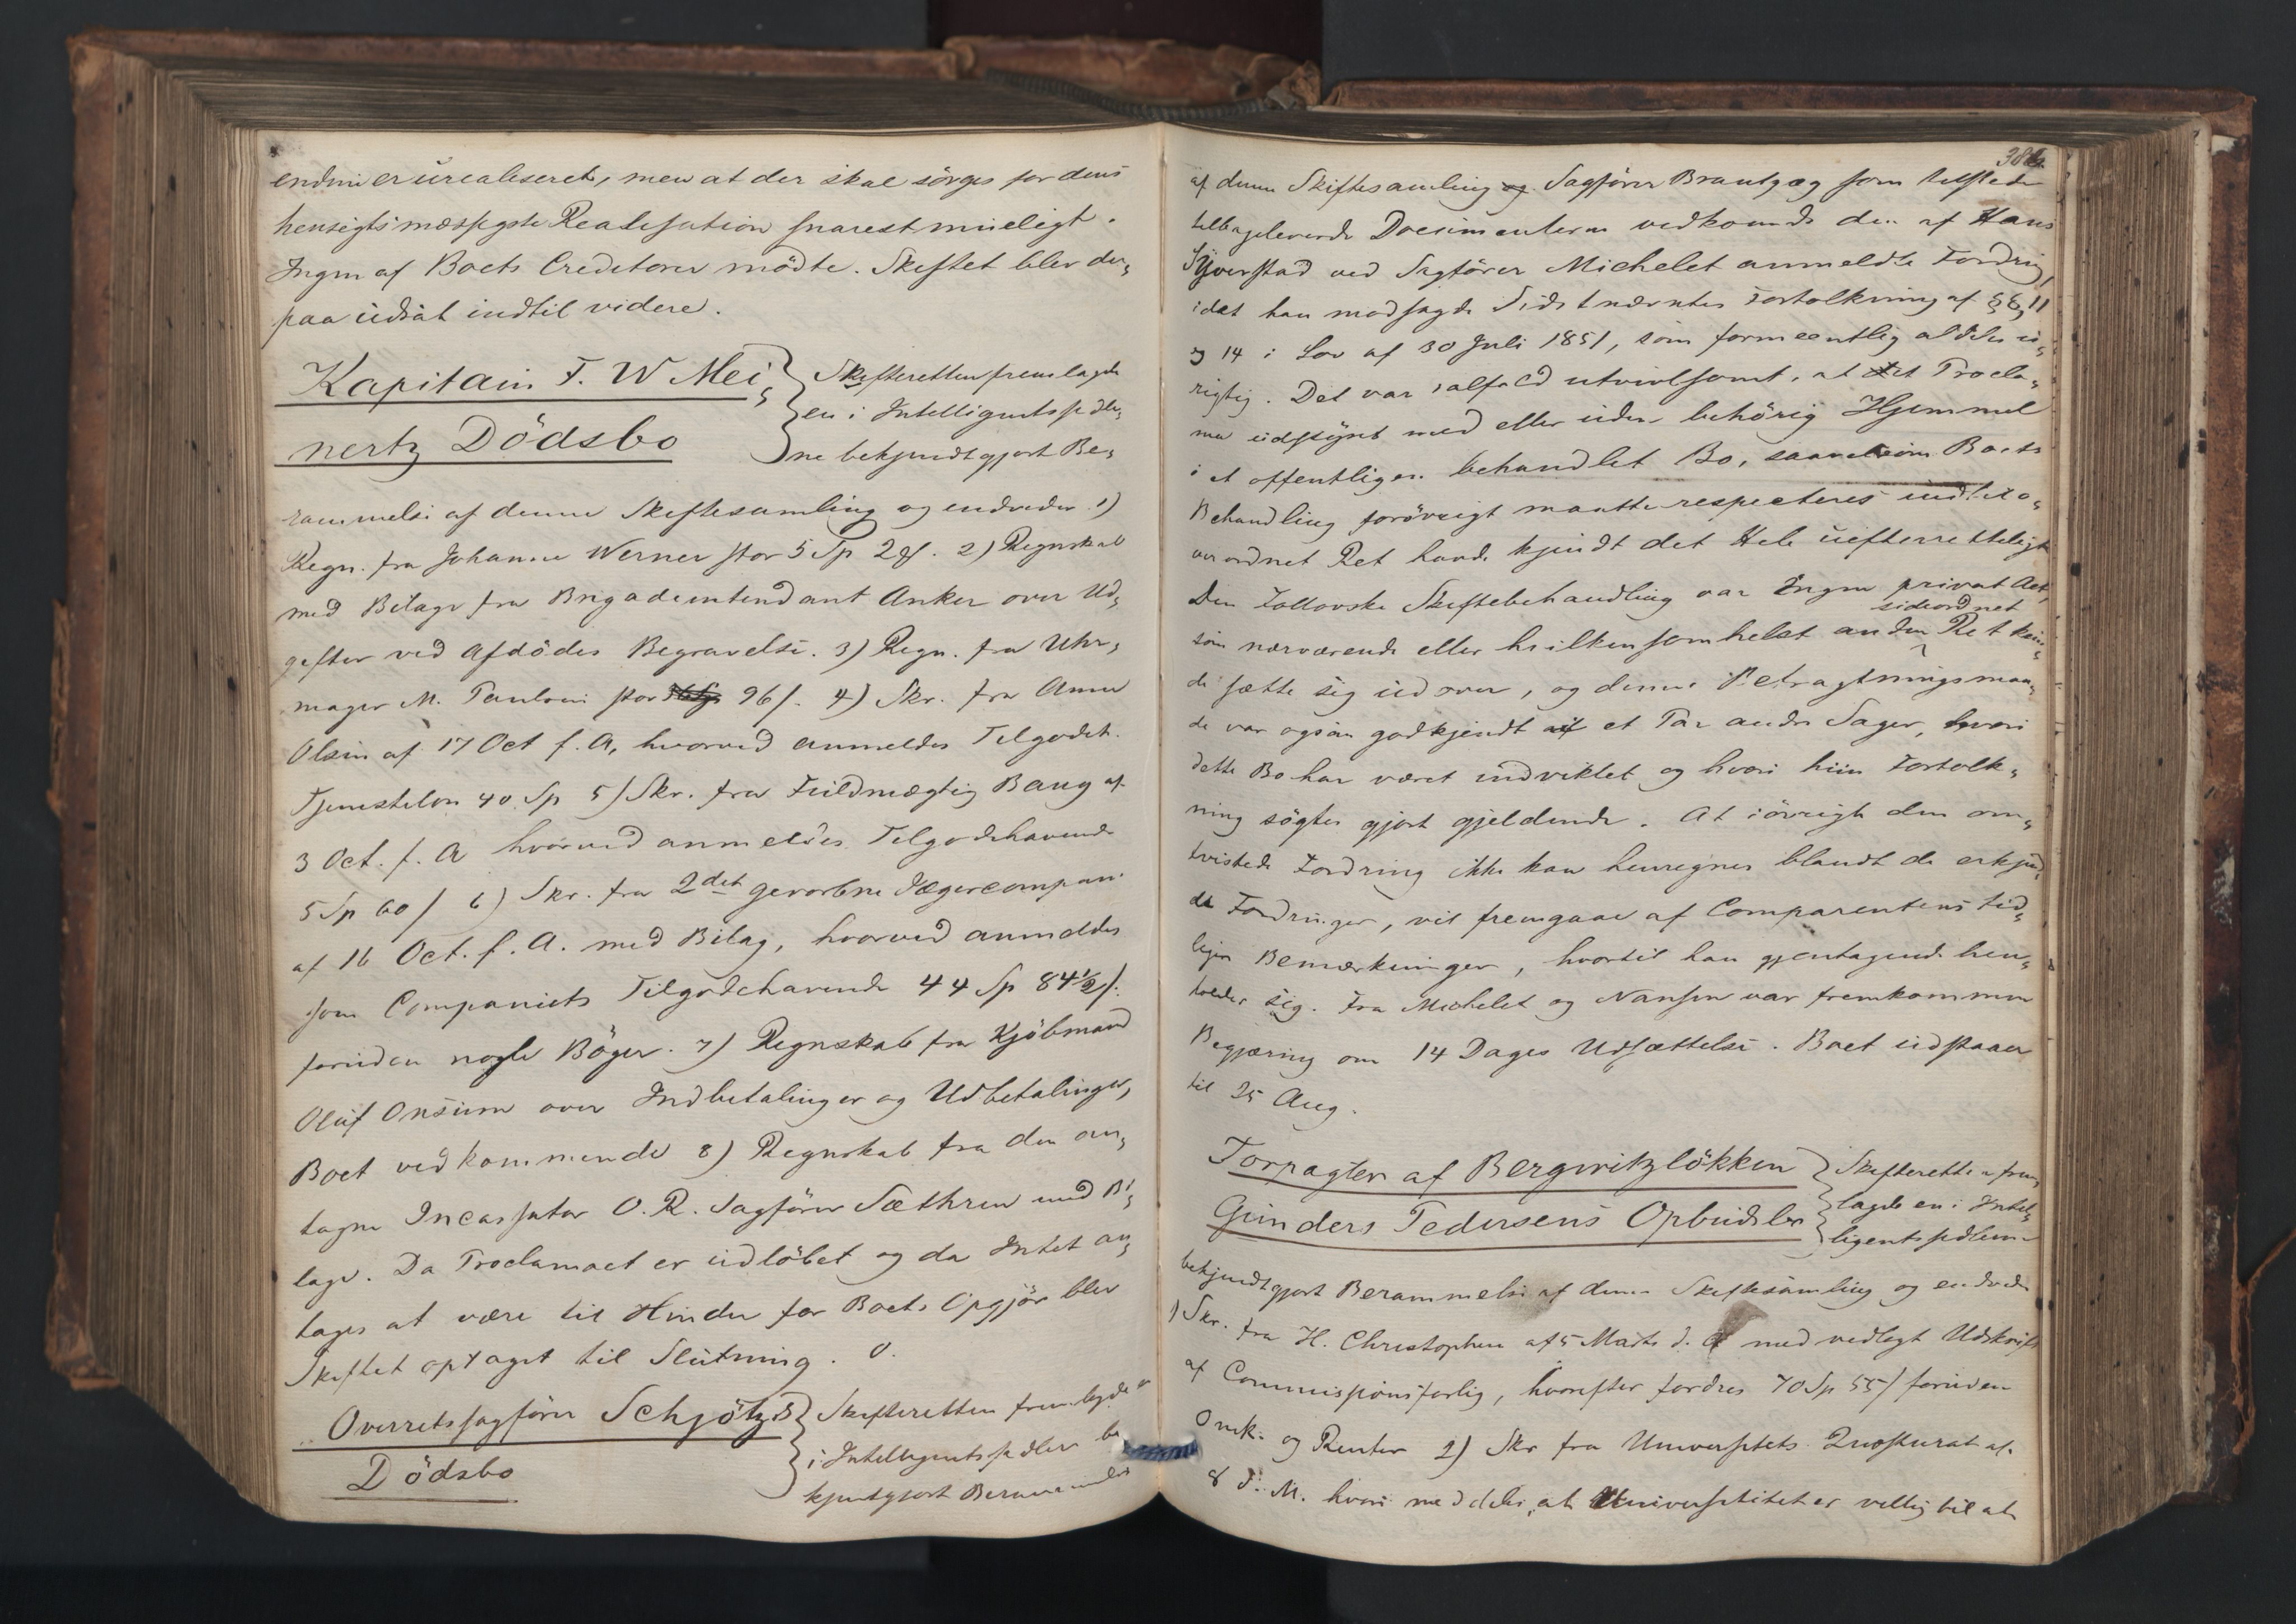 endnu er urealiseret, men at der skal sörges for dens
hensigtsmæssigste Realisation snarest mueligt.
Ingen af Boets Creditorer mödte. Skiftet blev der,
paa udsat indtil videre.
Kapitain F. W Mei,
nertz Dödsbo
Skifteretten fremlagde
en i Intelligentssedle,
ne bekjendtgjort Be,
rammelse af denne Skiftesamling og endvider 1)
Regn. fra Johanne Werner stor 5 Sp 2 2) Regnskab
med Bilage fra Brigadeintendant Anker over Ud,
gifter ved Afdödes Begravelse. 3) Regn. fra Uhr,
mager M. Paulsen stor 96/. 4) Skr. fra Anne
Olsen af 17 Oct f. A, hvorved anmeldes Tilgodeh.
Tjenestelön 40 Sp 5) Skr. fra Fuldmægtig Bang af
3 Oct. f. A hvorved anmeldes Tilgodehavende
5 Sp 60/ 6) Skr. fra 2det gevorbne Jægercompani
af 16 Oct. f. A. med Bilag, hvorved anmeldes
som Companiets Tilgodehavende 44 Sp 84½/.
foruden nogle Böger. 7) Regnskab fra Kjöbmand
Oluf Onsum over Indbetalinger og Udbetalinger,
Boet vedkommende 8) Regnskab fra den an,
tagne Incassator O. R. Sagförer Sæthren med Bi,
lage. Da Proclamaet er udlöbet og da Intet an,
tages at være til Hinder for Boets Opgjör blev
Skiftet optaget til Slutning.
Overretssagförer Schjötz's
Dödsbo
Skifteretten fremlagde en
i Intelligentssedlen be
kjendtgjort Berammelse
af denne Skiftesamling og Sagförer Brantzæg som tilstede
tilbageleverede Documenterne vedkomde den af Hans
ved Sagförer Michelet anmeldte Fordring,
idet han modsagde Sidstnævntes Fortolkning af §8, 11
og 14 i Lov af 30 Juli 1851, som formeentlig aldeles u,
rigtig. Det var ialfald utvivlsomt, at det Procla,
ma udstedt med eller uden behörig Hjemmel
i et offentligen behandlet Bo, saavelsom Boets
Behandling forövrigt maatte respecteres indtil o,
verordnet Ret havde kjendt det Hele uefterretteligt
Den Skiftebehandling var Ingen privat Act,
sideordnet
som nærværende eller hvilkensomhelst anden Ret kun,
de sætte sig ud over, og denne Betragtningsmaa,
de var ogsaa godkjendt af et Par andre Sager, hvori
dette Bo har været indviklet og hvori hiin Fortolk,
ning sögtes gjort gjeldende. At iövrigt den om,
tvistede Fordring ikke kan henregnes blandt de erkjend,
de Fordringer, vil fremgaae af Comparentens tid,
ligere Bemærkninger, hvortil han gjentagende hen,
holder sig. Fra Michelet og Nansen var fremkommen
Begjæring om 14 Dages Udsættelse. Boet udstaaer
til 25 Aug.
Forpagter af Bergwitzlökken
Gunders Pedersens Opbudsbo
Skifteretten frem,
lagde en i Intel,
ligentssedlerne
bekjendtgjort Berammelse af denne Skiftesamling og endvider
1) Skr. fra H. Christophersen af 5 Marts d. A med vedlagt Udskrift
af Commissionsforlig, hvorefter fordres 70 Sp 55/ foruden
Omk. og Renter 2) Skr fra Universitets Quæsturat af
8 d. M. hvori meddeles, at Universitetet er villig til at